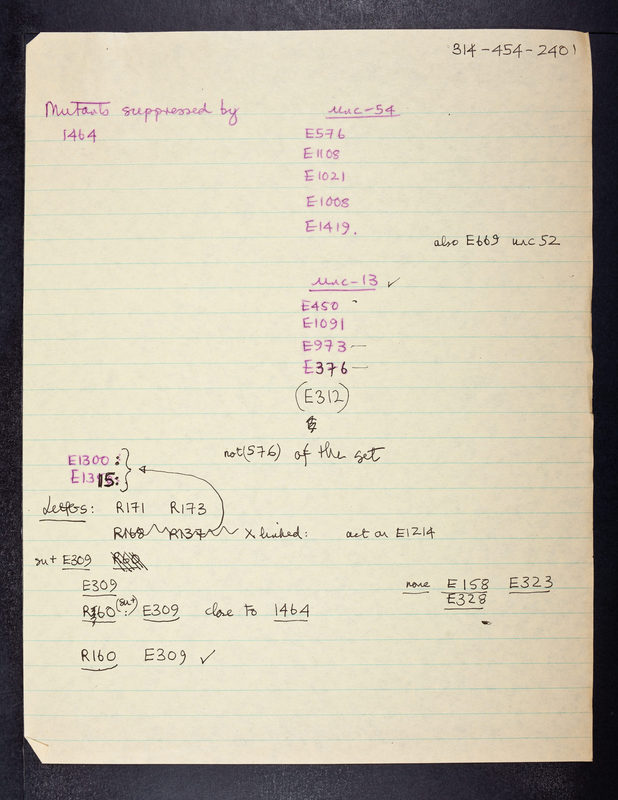 314-454-2401
Mutants suppressed by
1464
unc-54
E576
E1108
E1021
E1008
E1419.
also E669 unc 52
unc-13 ✓
E450
E1091
E973 —
E376 —
(E312)
not (576) of the set
E1300 :
E1315:
: R171 R173
R168 R137 X linked: act on E1214
su+ E309 R60
E309
R160 (su+) : E309 close to 1464
none E158 E323
E328
R160 E309 ✓